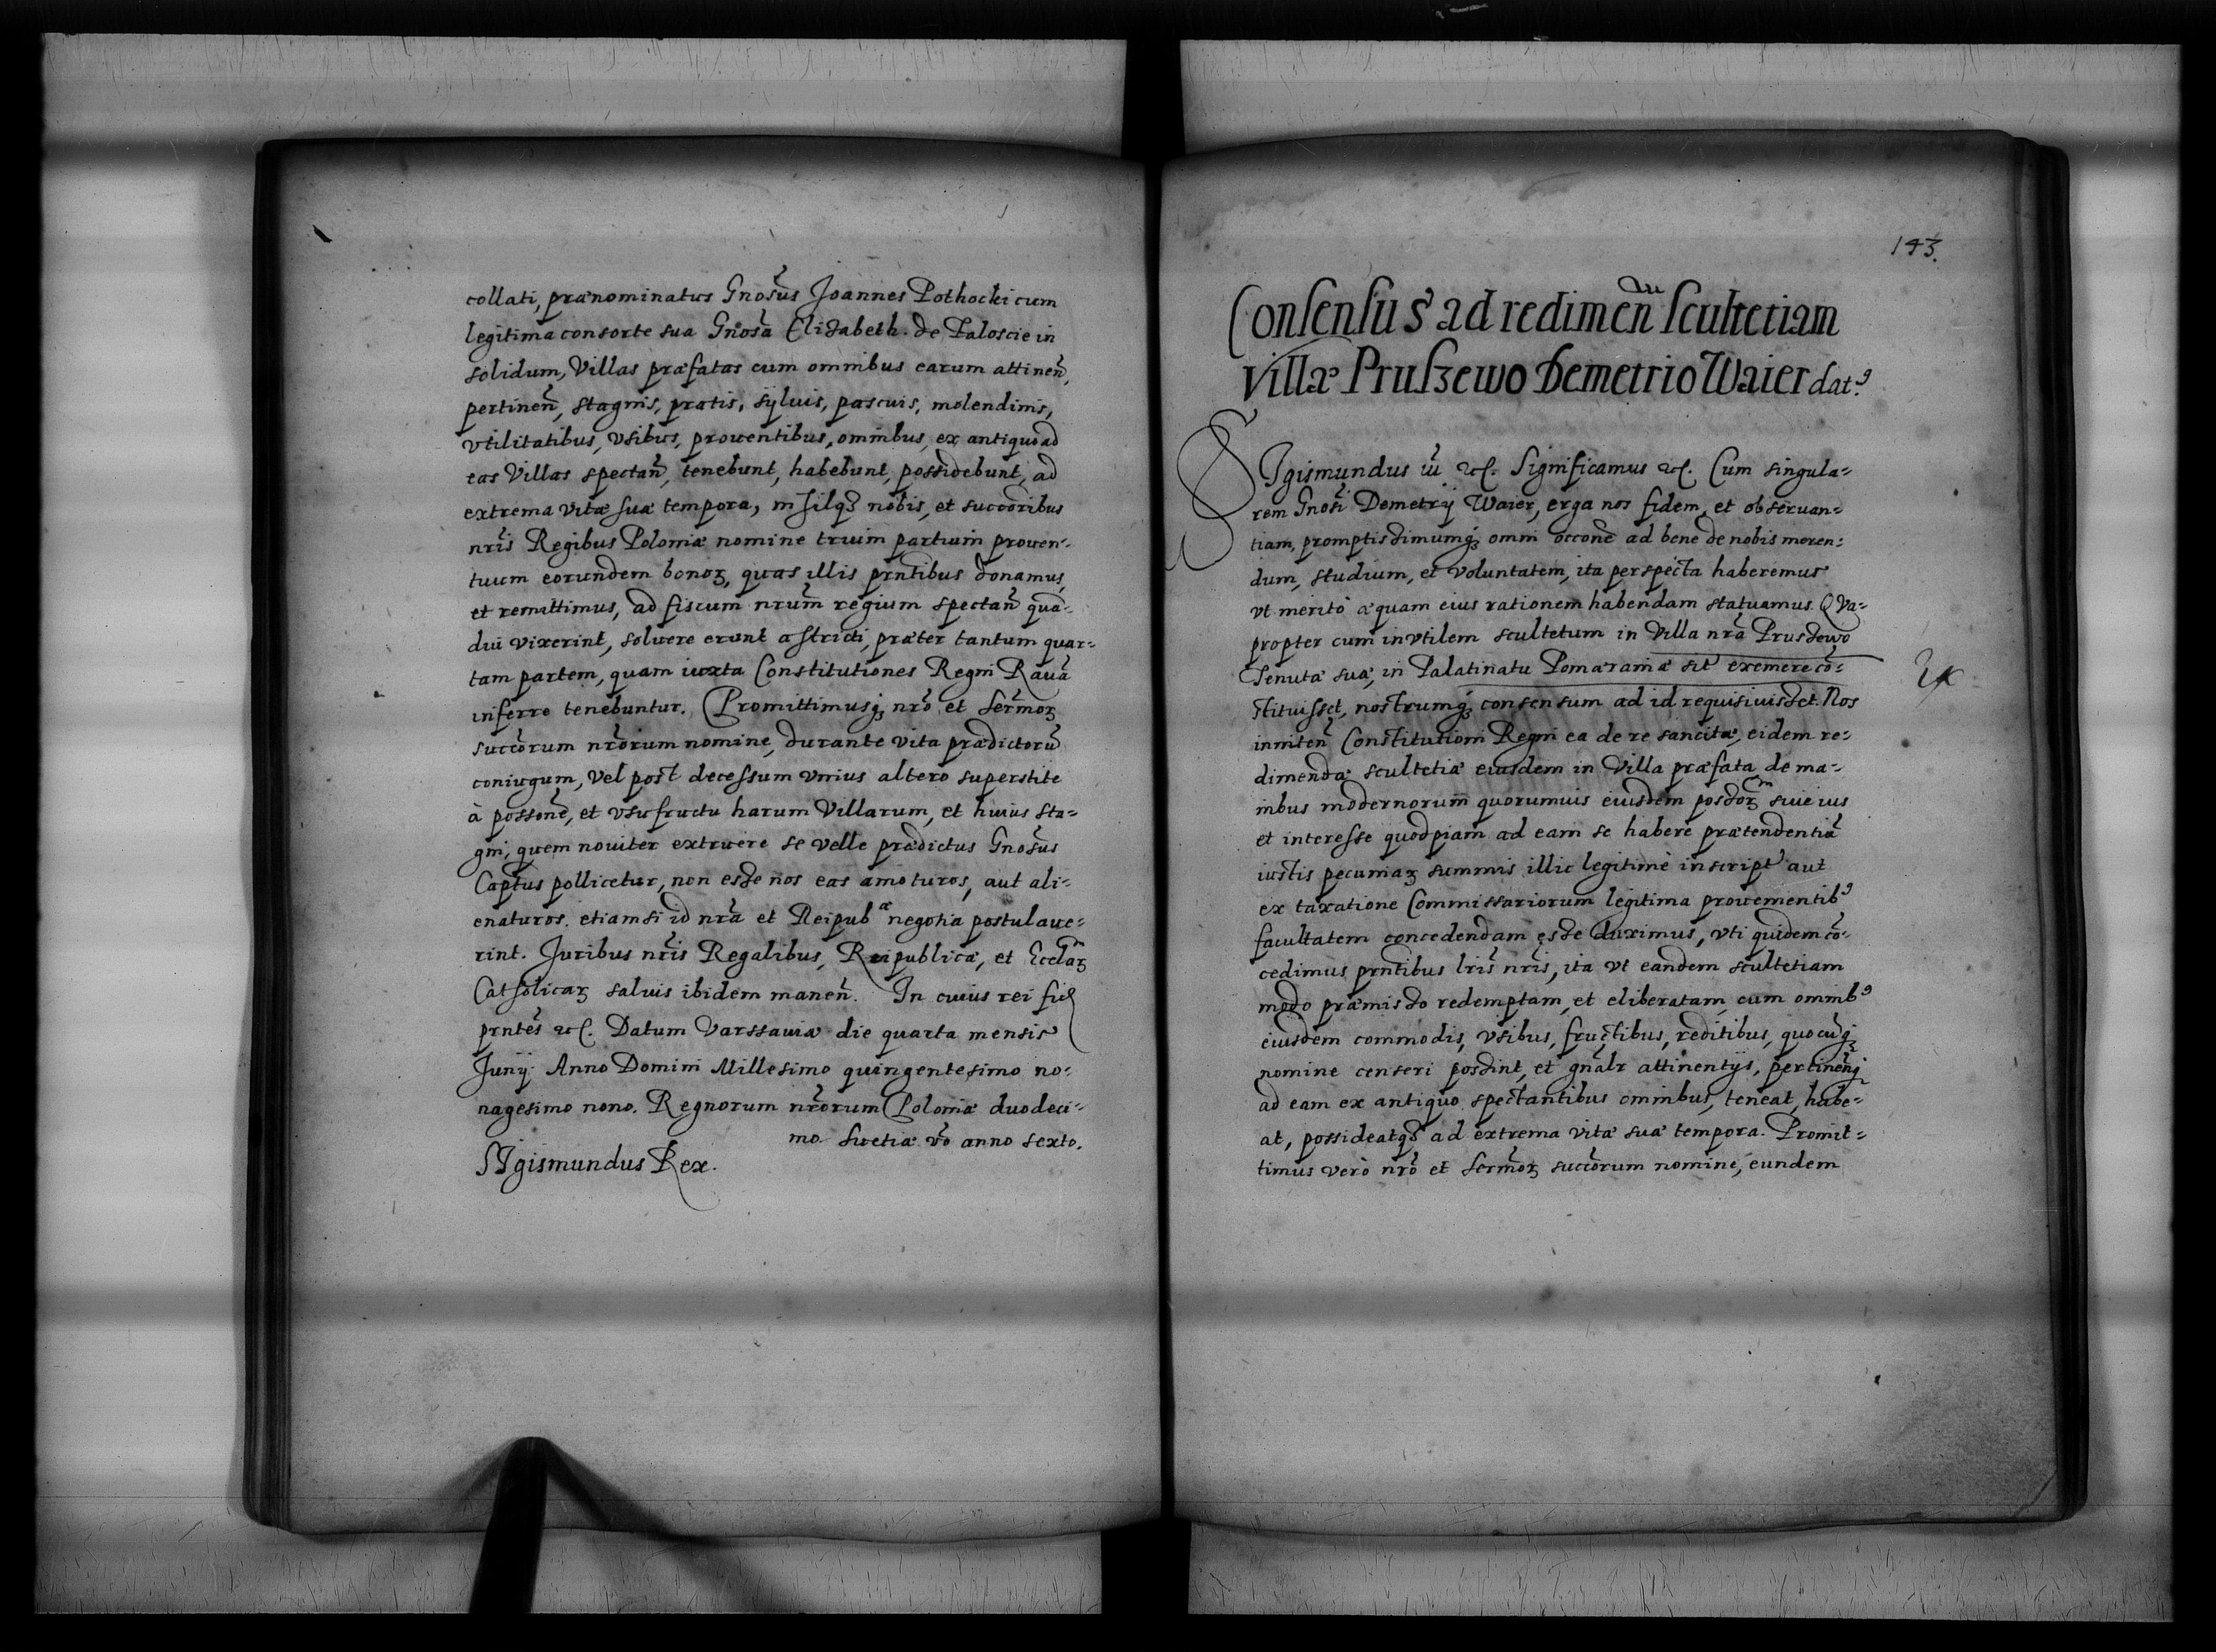 collati, prænominatus Gnosus Joannes Pothocki cum
legitima consorte sua Gnosa Elizabeth. de Paloscie in
solidum, Villas præfatas cum omnibus earum attinen̄,
pertinen̄, stagnis, pratis, syluis, pascuis, molendinis,
vtilitatibus, vsibus, prouentibus, omnibus, ex antiquo ad
eas Villas spectan̄, tenebunt, habebunt, possidebunt, ad
extrema vitæ suæ tempora, nobis, et succoribus
nr̄is Regibus Poloniæ nomine trium partium prouen-
tuum eorundem bonoꝝ, quas illis prn̄tibus donamus,
et remittimus, ad fiscum nrūm regium spectan̄ qua-
diu vixerint, soluere erunt astricti, præter tantum quar-
tam partem, quam iuxta Constitutiones Regni Rauā
inferre tenebuntur. Promittimusqꝫ nrō et Sermoꝝ
succorum nrorum nomine, durante vita prædictorū
coniugum, vel post decessum vnius altero superstite
à possone, et vsufructu harum Villarum, et huius sta-
gni, quem nouiter extruere se velle prædictus Gnosus
Captus pollicetur, non esse nos eas amoturos, aut ali-
enaturos. etiamsi id nrā et Reipub æ negotia postulaue-
rint. Juribus nrīs Regalibus, Reipublicæ, et Ecclaꝝ
Catholicaꝝ saluis ibidem manen̄. In cuius rei fid
prntēs ꝛc. Datum Varssauiæ die quarta mensis
Junij Anno Domini Millesimo quingentesimo no-
nagesimo nono. Regnorum nrōrum Poloniæ duodeci-
mo. Suetiæ vō anno sexto.
SIgismundus Rex.
143.
Consensus ad redimen̄ scultetiam
Villæ Pruszewo Demetrio Waier datꝰ
SIgismundus iii ꝛc. Significamus ꝛc. Cum singula-
rem Gnosi Demetrij Waier, erga nos fidem, et obseruan-
tiam, promptissimumqꝫ omni occone ad bene de nobis meren-
dum, studium, et voluntatem, ita perspecta haberemus
vt meritò æquam eius rationem habendam statuamus. QVa-
propter cum invtilem scultetum in Villa nrā Pruszewo
Tenutæ suæ, in Palatinatu Pomeraniæ sit exemere cō-
stituisset, nostrumqꝫ consensum ad id requisiuisset. Nos
inniten̄ Constitutioni Regni ea de re sancitæ, eidem re-
dimendæ scultetiæ eiusdem in Villa præfata de ma-
nibus modernorum quorumuis eiusdem possorꝝ siue ius
et interesse quodpiam ad eam se habere prætendentiū
iustis pecuniaꝝ summis illic legitimè inscript aut
ex taxatione Commissariorum legitima prouenientibꝰ
facultatem concedendam esse duximus, vti quidem cō-
cedimus prntibus lrīs nrīs, ita vt eandem scultetiam
modo præmisso redemptam, et eliberatam, cum omnibꝰ
eiusdem commodis, vsibus, fructibus, reditibus, quocūqꝫ
nomine censeri possint, et gnālr attinentijs, pertinen̄qꝫ
ad eam ex antiquo spectantibus omnibus, teneat, habe-
at, possideatqꝫ ad extrema vitæ suæ tempora. Promit-
timus verò nrō et Sermoꝝ succorum nomine, eundem